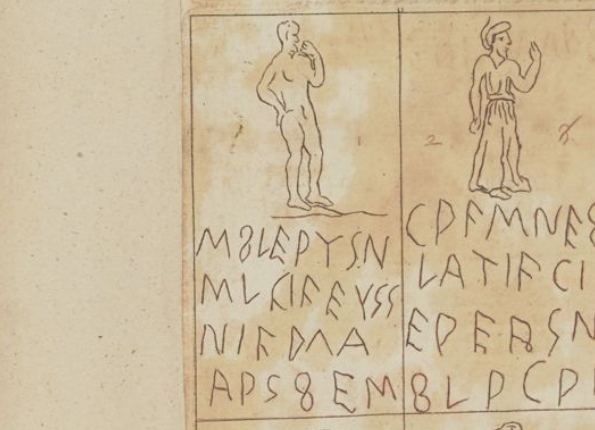 M8LEPYSN
MLCIFEYSS
NIFDΛA
APS8EM
1
2
CPFMNE8
LATIFCI
EPEASN
8LPCP